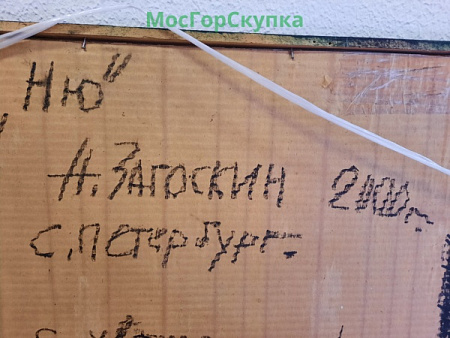 МосГорСкупка
„Ню"
А. Загоскин 2000г.
С. Петербург